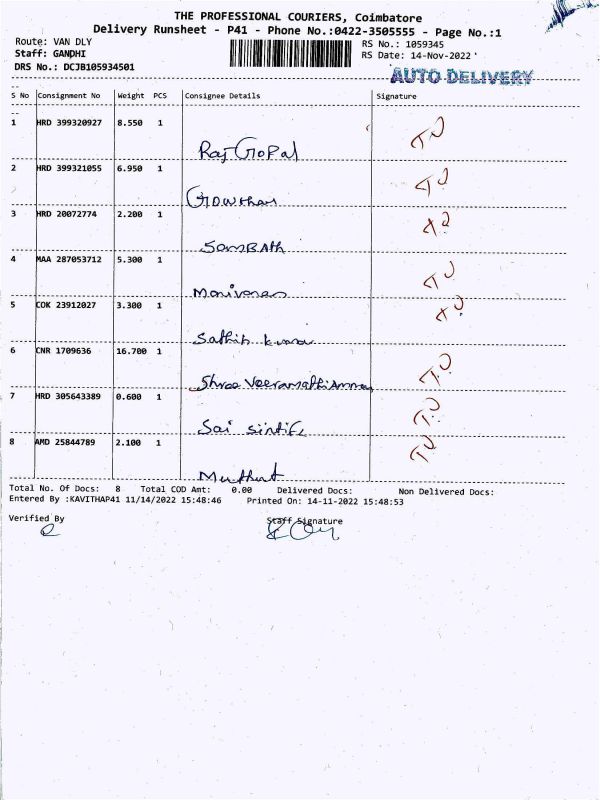 THE PROFESSIONAL COURIERS, Coimbatore
Delivery Runsheet - P41 - Phone No.:0422-3505555 - Page No.:1
Route: VAN DLY
RS No.: 1059345
Staff: GANDHI
RS Date: 14-Nov-2022
DRS No.: DCJB105934501
AUTO DELIVERY
S No Consignment No Weight PCS Consignee Details Signature
1 HRD 399320927 8.550 1
Raj Gopal
2 HRD 399321055 6.950 1
Gowtham
3 HRD 20072774 2.200 1
SamBAth
4 MAA 287053712 5.300 1
5 COK 23912027 3.300 1
6 CNR 1709636 16.700 1
Shree Veeramathiamman
7 HRD 305643389 0.600 1
Sai
8 AMD 25844789 2.100 1
Total No. Of Docs: 8 Total COD Amt: 0.00 Delivered Docs: Non Delivered Docs:
Entered By :KAVITHAP41 11/14/2022 15:48:46 Printed On: 14-11-2022 15:48:53
Verified By
Staff Signature